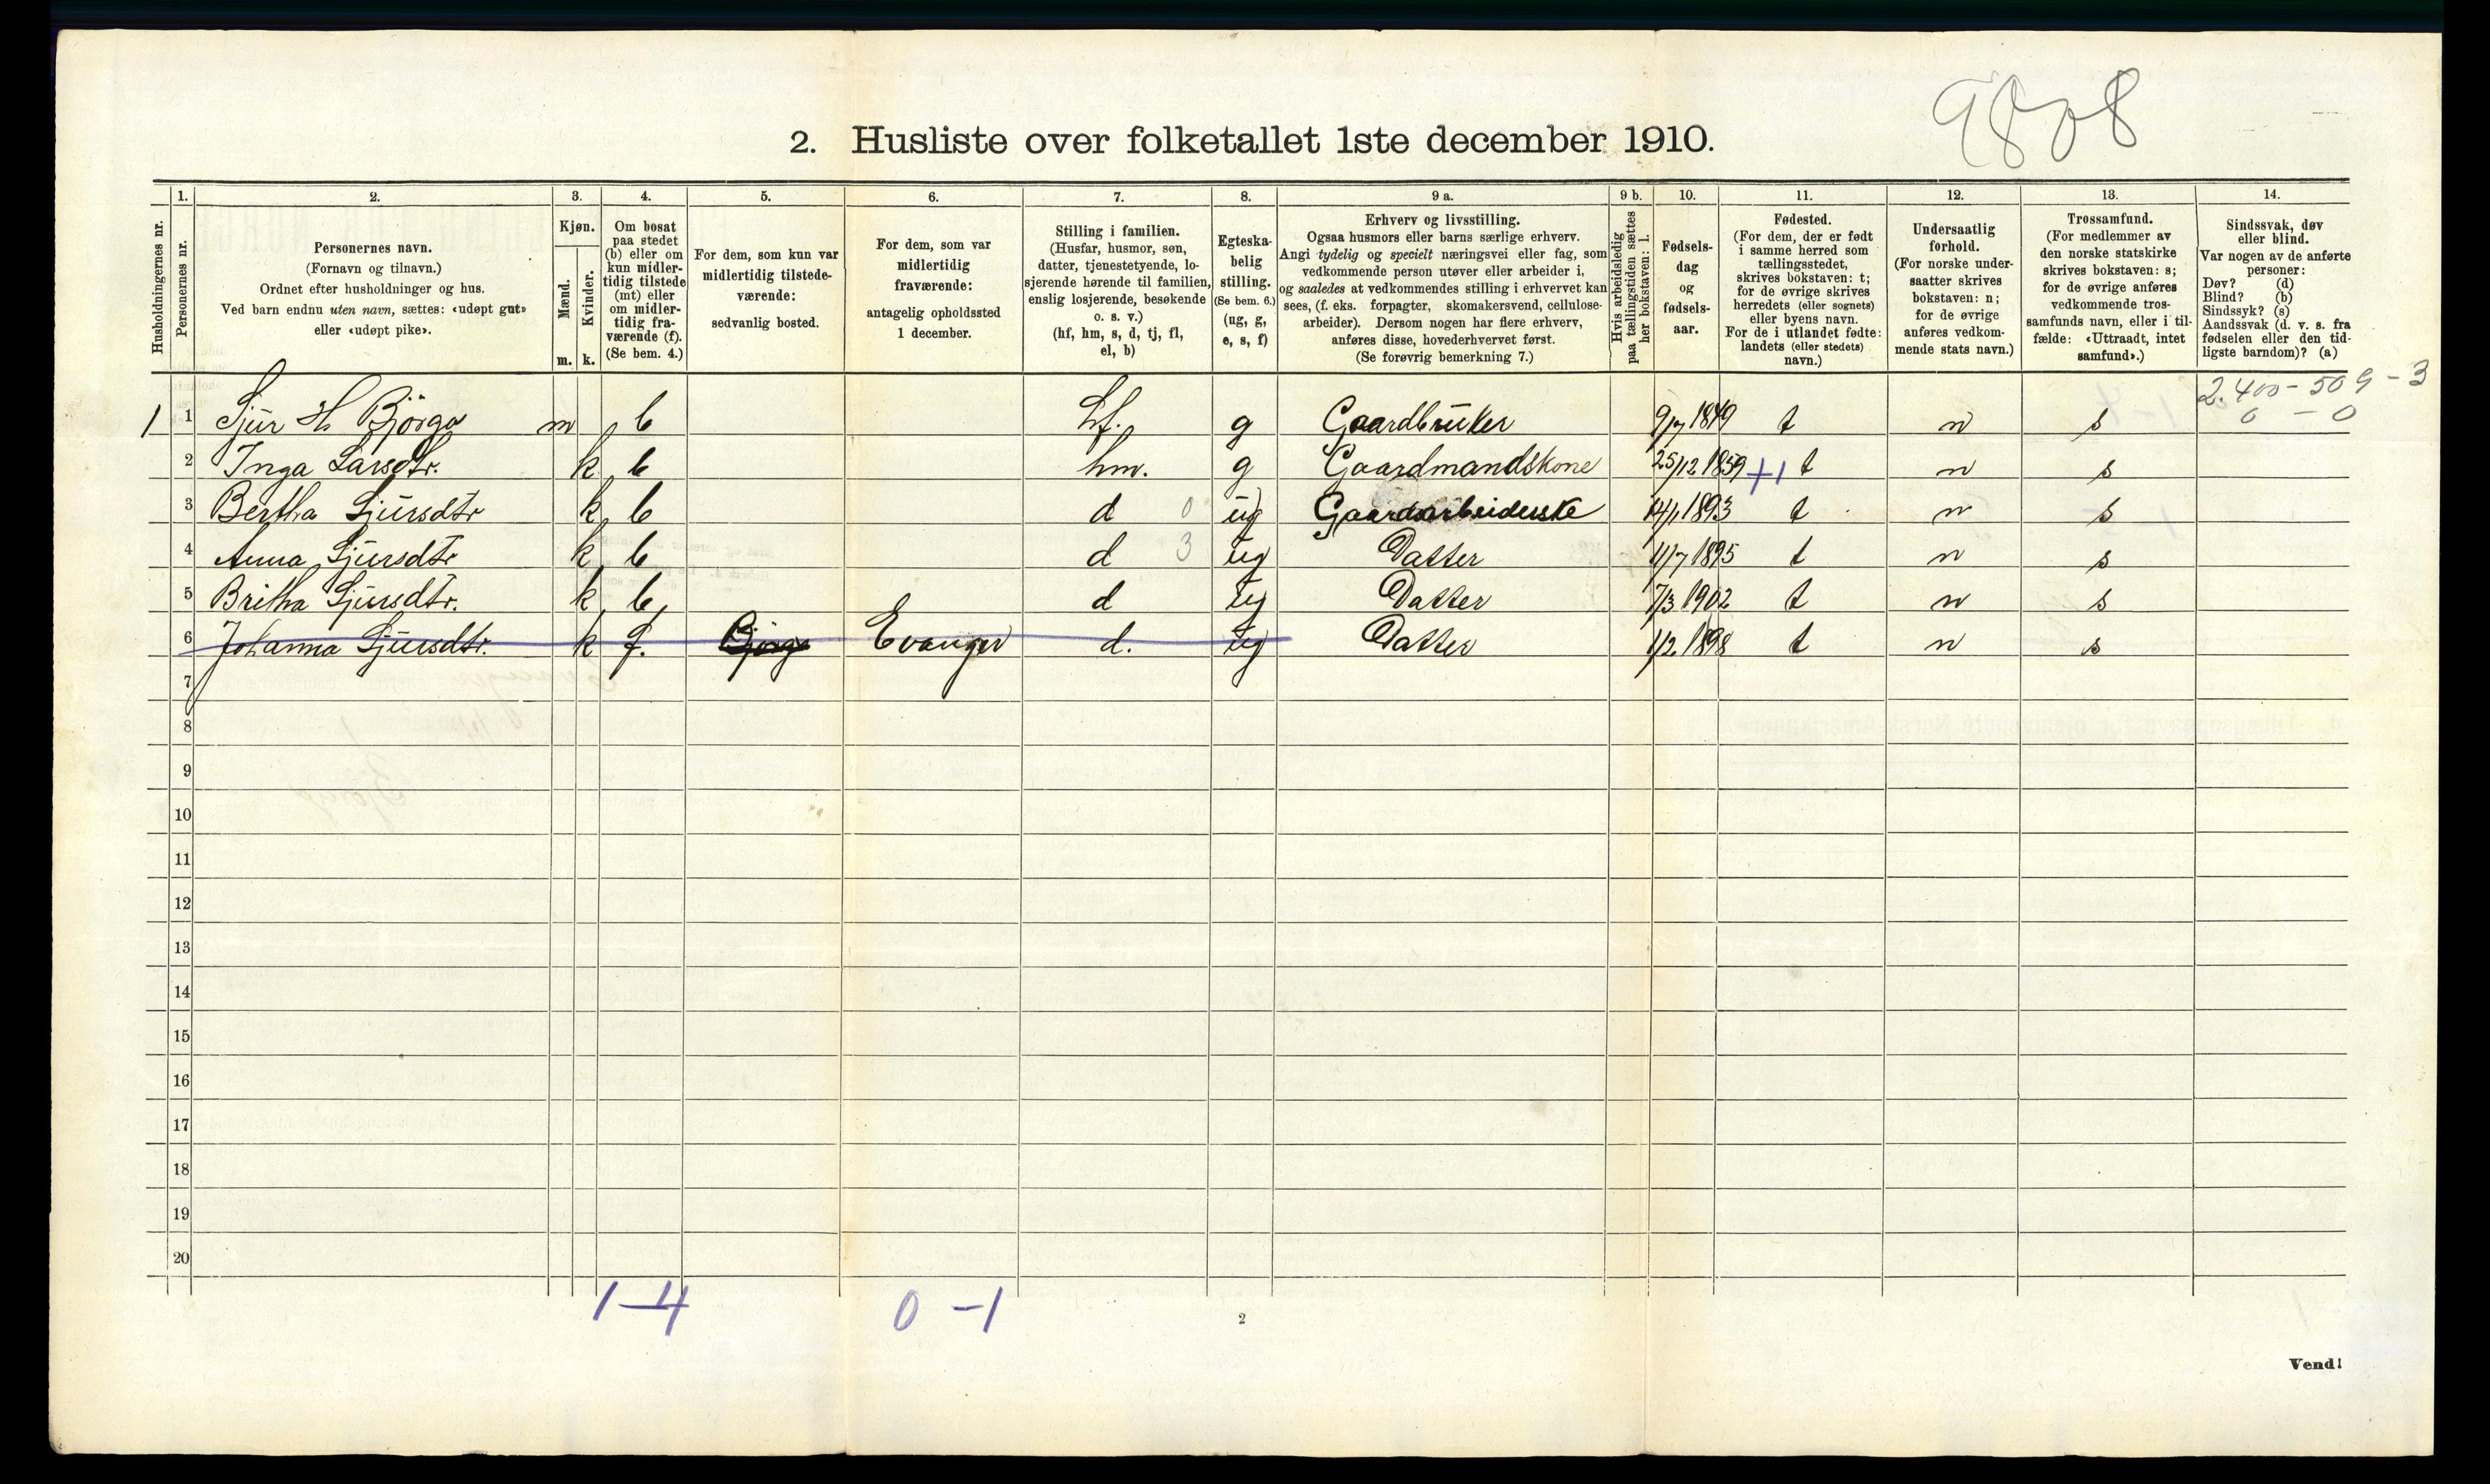 9808
2. Husliste over folketallet 1ste december 1910.
Husholdningernes nr.
1.
Personernes nr.
2.
Personernes navn.
(Fornavn og tilnavn.)
Ordnet efter husholdninger og hus.
Ved barn endnu uten navn, sættes: «udøpt gut»
eller «udøpt pike».
3.
Kjøn.
Mænd.
Kvinder.
m. k.
4.
Om bosat
paa stedet
(b) eller om
kun midler-
tidig tilstede
(mt) eller
om midler-
tidig fra-
værende (f).
(Se bem. 4.)
5.
For dem, som kun var
midlertidig tilstede-
værende:
sedvanlig bosted.
6.
For dem, som var
midlertidig
fraværende:
antagelig opholdssted
1 december.
7.
Stilling i familien.
(Husfar, husmor, søn,
datter, tjenestetyende, lo-
sjerende hørende til familien,
enslig losjerende, besøkende
o. s. v.)
(hf, hm, s, d, tj, fl,
el, b)
8.
Egteska-
belig
stilling.
(Se bem. 6.)
(ug, g,
e, s, f)
9 a.
Erhverv og livsstilling.
Ogsaa husmors eller barns særlige erhverv.
Angi tydelig og specielt næringsvei eller fag, som
vedkommende person utøver eller arbeider i,
og saaledes at vedkommendes stilling i erhvervet kan
sees, (f. eks. forpagter, skomakersvend, cellulose-
arbeider). Dersom nogen har flere erhverv,
anføres disse, hovederhvervet først.
(Se forøvrig bemerkning 7.)
9 b.
Hvis arbeidsledig
paa tællingstiden sættes
her bokstaven: l.
10.
Fødsels-
dag
og
fødsels-
aar.
11.
Fødested.
(For dem, der er født
i samme herred som
tællingsstedet,
skrives bokstaven: t;
for de øvrige skrives
herredets (eller sognets)
eller byens navn.
For de i utlandet fødte:
landets (eller stedets)
navn.)
12.
Undersaatlig
forhold.
(For norske under-
saatter skrives
bokstaven: n;
for de øvrige
anføres vedkom-
mende stats navn.)
13.
Trossamfund.
(For medlemmer av
den norske statskirke
skrives bokstaven: s;
for de øvrige anføres
vedkommende tros-
samfunds navn, eller i til-
fælde: «Uttraadt, intet
samfund».)
14.
Sindssvak, døv
eller blind.
Var nogen av de anførte
personer:
Døv? (d)
Blind? (b)
Sindssyk? (s)
Aandssvak (d. v. s. fra
fødselen eller den tid-
ligste barndom)? (a)
2.400-509-3
0 - 0
1 1 Sjur H Bjørgo m b hf. g Gaardbruker 9/7 1849 t n s
2 Inga Larsdtr. k b hm. g Gaardmandskone 25/12 1859 +1 t n s
3 Bertha Sjursdtr k b d 0 ug Gaardsarbeiderske 14/1 1893 t n s
4 Anna Sjursdtr k b d 3 ug Datter 11/7 1895 t n s
5 Britha Sjursdtr. k b d ug Datter 7/3 1902 t n s
6 Johanna Sjursdtr. k f. Bjørgo Evanger d. ug Datter 1/2 1898 t n s
7
8
9
10
11
12
13
14
15
16
17
18
19
20
1-4 0-1
2
Vend!